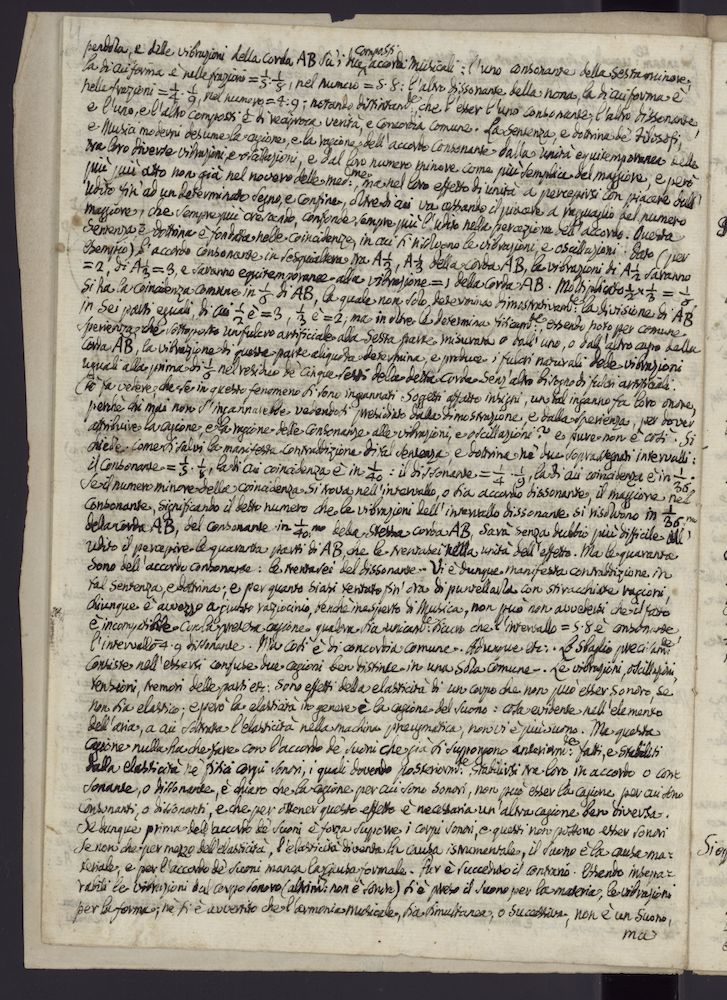 pendola, e dalle vibrazioni della corda AB composti accordi musicali: l'uno consonante della sesta minore,
la di cui forma è nelle frazioni = 1/5 · 1/8, nel numero = 5·8: l'altro dissonante della nona, la di cui forma è
nelle frazioni = 1/4 · 1/9, nel numero = 4:9; notando che l'esser l'uno consonante, l'altro dissonante
e l'uno, e l'altro composti è di reciproca verità, e concordia comune. La sentenza, e dottrina de' Filosofi,
e Musici moderni desume la cagione, e la ragione dell'accordo consonante dalla unità equitemporanea delle
tra loro diverse vibrazioni, e oscillazioni, e dal loro numero minore come più semplice del maggiore, e però
più, più atto non già nel novero delle med.me, ma nel loro effetto di unità a percepirsi con piacere dall'
udito sin ad un determinato segno, e confine, oltre di cui va cessando il piacere a ragguaglio del numero
maggiore, che sempre più crescendo, confonde sempre più l'udito nella percezione dell'accordo. Questa
sentenza e dottrina è fondata nelle coincidenze, in cui si risolvono le vibrazioni, e oscillazioni. Dato (per
esempio) l'accordo consonante in sesquialtera tra A 1/2, A 1/3 della corda AB, le vibrazioni di A 1/2 saranno
= 2, di A 1/3 = 3, e saranno equitemporanee alla vibrazione = 1 della corda AB. Moltiplicato 1/2 × 1/3 = 1/6,
si ha la coincidenza comune in 1/6 di AB, la quale non solo determina dimostrativam.te la divisione di AB
in sei parti eguali, di cui 1/2 è = 3, 1/3 è = 2; ma in oltre la determina fisicam.te essendo noto per comune
sperienza che sottoposto un fulcro artificiale alla sesta parte misurata o dall'uno, o dall'altro capo della
corda AB, la vibrazione di questa parte aliquota determina, e produce i fulcri naturali delle vibrazioni
uguali alla prima di 1/6 nel residuo de' cinque sesti della detta corda senz'altro bisogno di fulcri artificiali.
Se in questo fenomeno si sono ingannati Sogetti affatto insigni, un tal inganno fa loro onore,
perchè chi mai non s'ingannarebbe vedendosi presidiato dalla dimostrazione, e dalla sperienza, per dover
attribuire la cagione, e la ragione delle consonanze alle vibrazioni, e oscillazioni? e pure non è così. Si
chiede come si salvi la manifesta contraddizione di tal sentenza, e dottrina ne' due sopra segnati intervalli:
il consonante = 1/5 · 1/8, la di cui coincidenza è in 1/40: il dissonante = 1/4 · 1/9, la di cui coincidenza è in 1/36.
Se il numero minore della coincidenza si trova nell'intervallo, o sia accordo dissonante, il maggiore nel
consonante, significando il detto numero che le vibrazioni dell'intervallo dissonante si risolvono in 1/36.mo
della corda AB, del consonante in 1/40.mo della stessa corda AB, sarà senza dubbio più difficile all'
udito il percepire le quaranta parti di AB, che le trentasei nella unità dell'effetto. Ma le quaranta
sono dell'accordo consonante: le trentasei del dissonante. Vi è dunque manifesta contraddizione in
tal sentenza, e dottrina; e per quanto siasi tentato sin'ora di puntellarla con stiracchiate ragioni,
chiunque è avvezzo a giusto raziocinio, benchè inesperto di Musica, non può non avvedersi che il fatto
è incompatibile con la pretesa cagione qualora sia unicam.te. Giacchè l'intervallo = 5·8 è consonante,
l'intervallo 4·9 dissonante. Ma così è di concordia comune. Adunque etc. Lo sbaglio precisam.te
consiste nell'essersi confuse due cagioni ben distinte in una sola comune. Le vibrazioni, oscillazioni,
tensioni, tremori delle parti etc. sono effetti della elasticità di un corpo che non può esser sonoro, se
non sia elastico: e però la elasticità in genere è la cagione del suono: cosa evidente nell'elemento
dell'aria, a cui sottratta l'elasticità nella machina pneumatica, non vi è più suono. Ma questa
cagione nulla ha che fare con l'accordo de' suoni che già si suppongono anteriorm.te fatti, e stabiliti
dalla elasticità ne' fisici corpi sonori, i quali dovendo posteriorm.te stabilirsi tra loro in accordo o con-
sonante, o dissonante, è chiaro che la cagione per cui sono sonori, non può esser la cagione per cui sono
consonanti, o dissonanti, e che per ottener questo effetto è necessaria un'altra cagione ben diversa.
Se dunque prima dell'accordo de' suoni è forza supporre i corpi sonori, e questi non possono esser sonori
se non che per mezzo dell'elasticità, l'elasticità diventa la causa istrumentale, il suono è la causa ma-
teriale, e per l'accordo de' suoni manca la causa formale. Pur è succeduto il contrario. Essendo insepa-
rabili le vibrazioni dal corpo sonoro (altrim.ti non è sonoro) si è preso il suono per la materia, le vibrazioni
per la forma; nè si è avvertito che l'armonia musicale, sia simultanea, o successiva, non è un suono,
ma